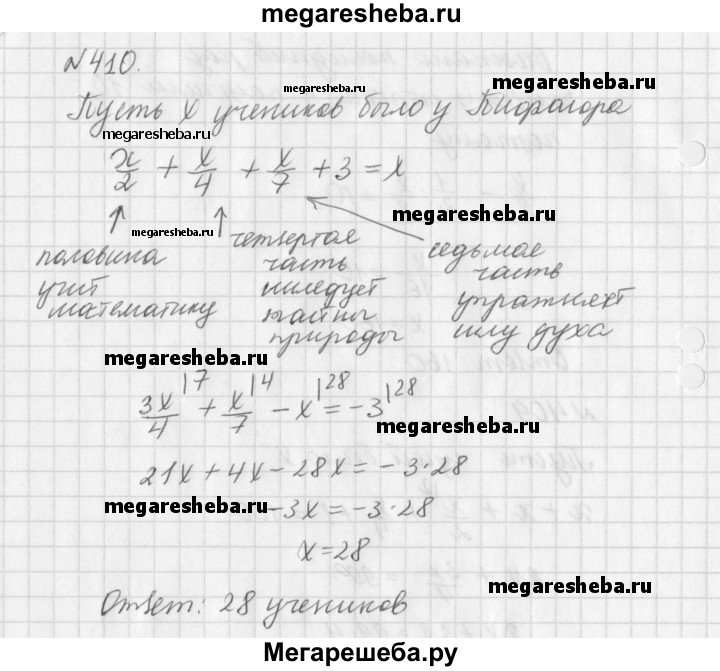 megaresheba.ru
№410.
megaresheba.ru
megaresheba.ru
Пусть x учеников было у Пифагора
megaresheba.ru
x/2 + x/4 + x/7 + 3 = x
megaresheba.ru
megaresheba.ru
половина
учит
математику
четвертая
часть
тайны
природы
седьмая
часть
упражняет
силу духа
megaresheba.ru
3x/4 |7 + x/7 |4 - x |28 = -3 |28
megaresheba.ru
21x + 4x - 28x = -3·28
megaresheba.ru
-3x = -3·28
x = 28
megaresheba.ru
Ответ: 28 учеников
Мегарешеба.ру